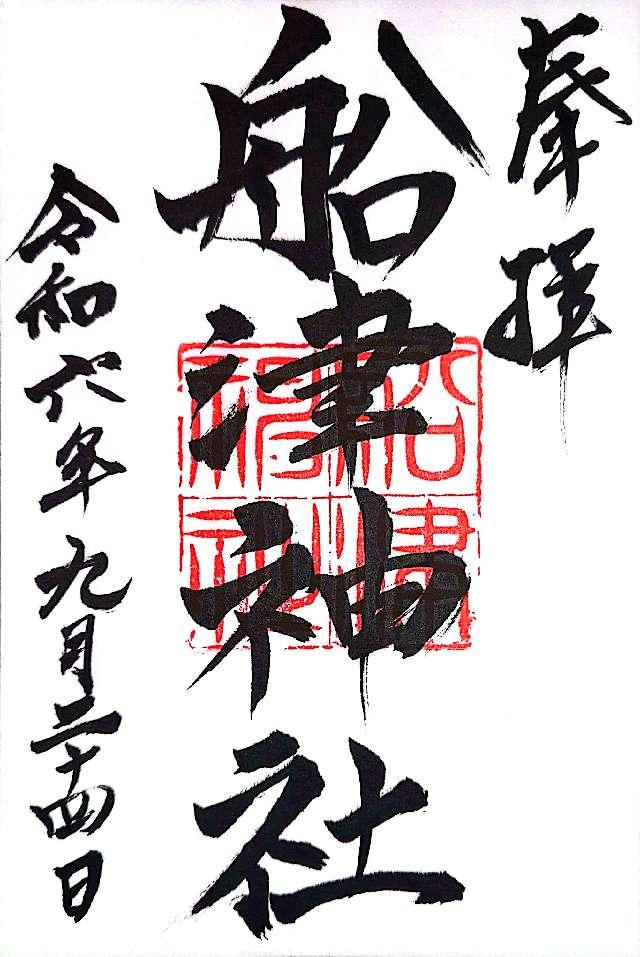 奉拝
船津神社
令和六年九月二十四日